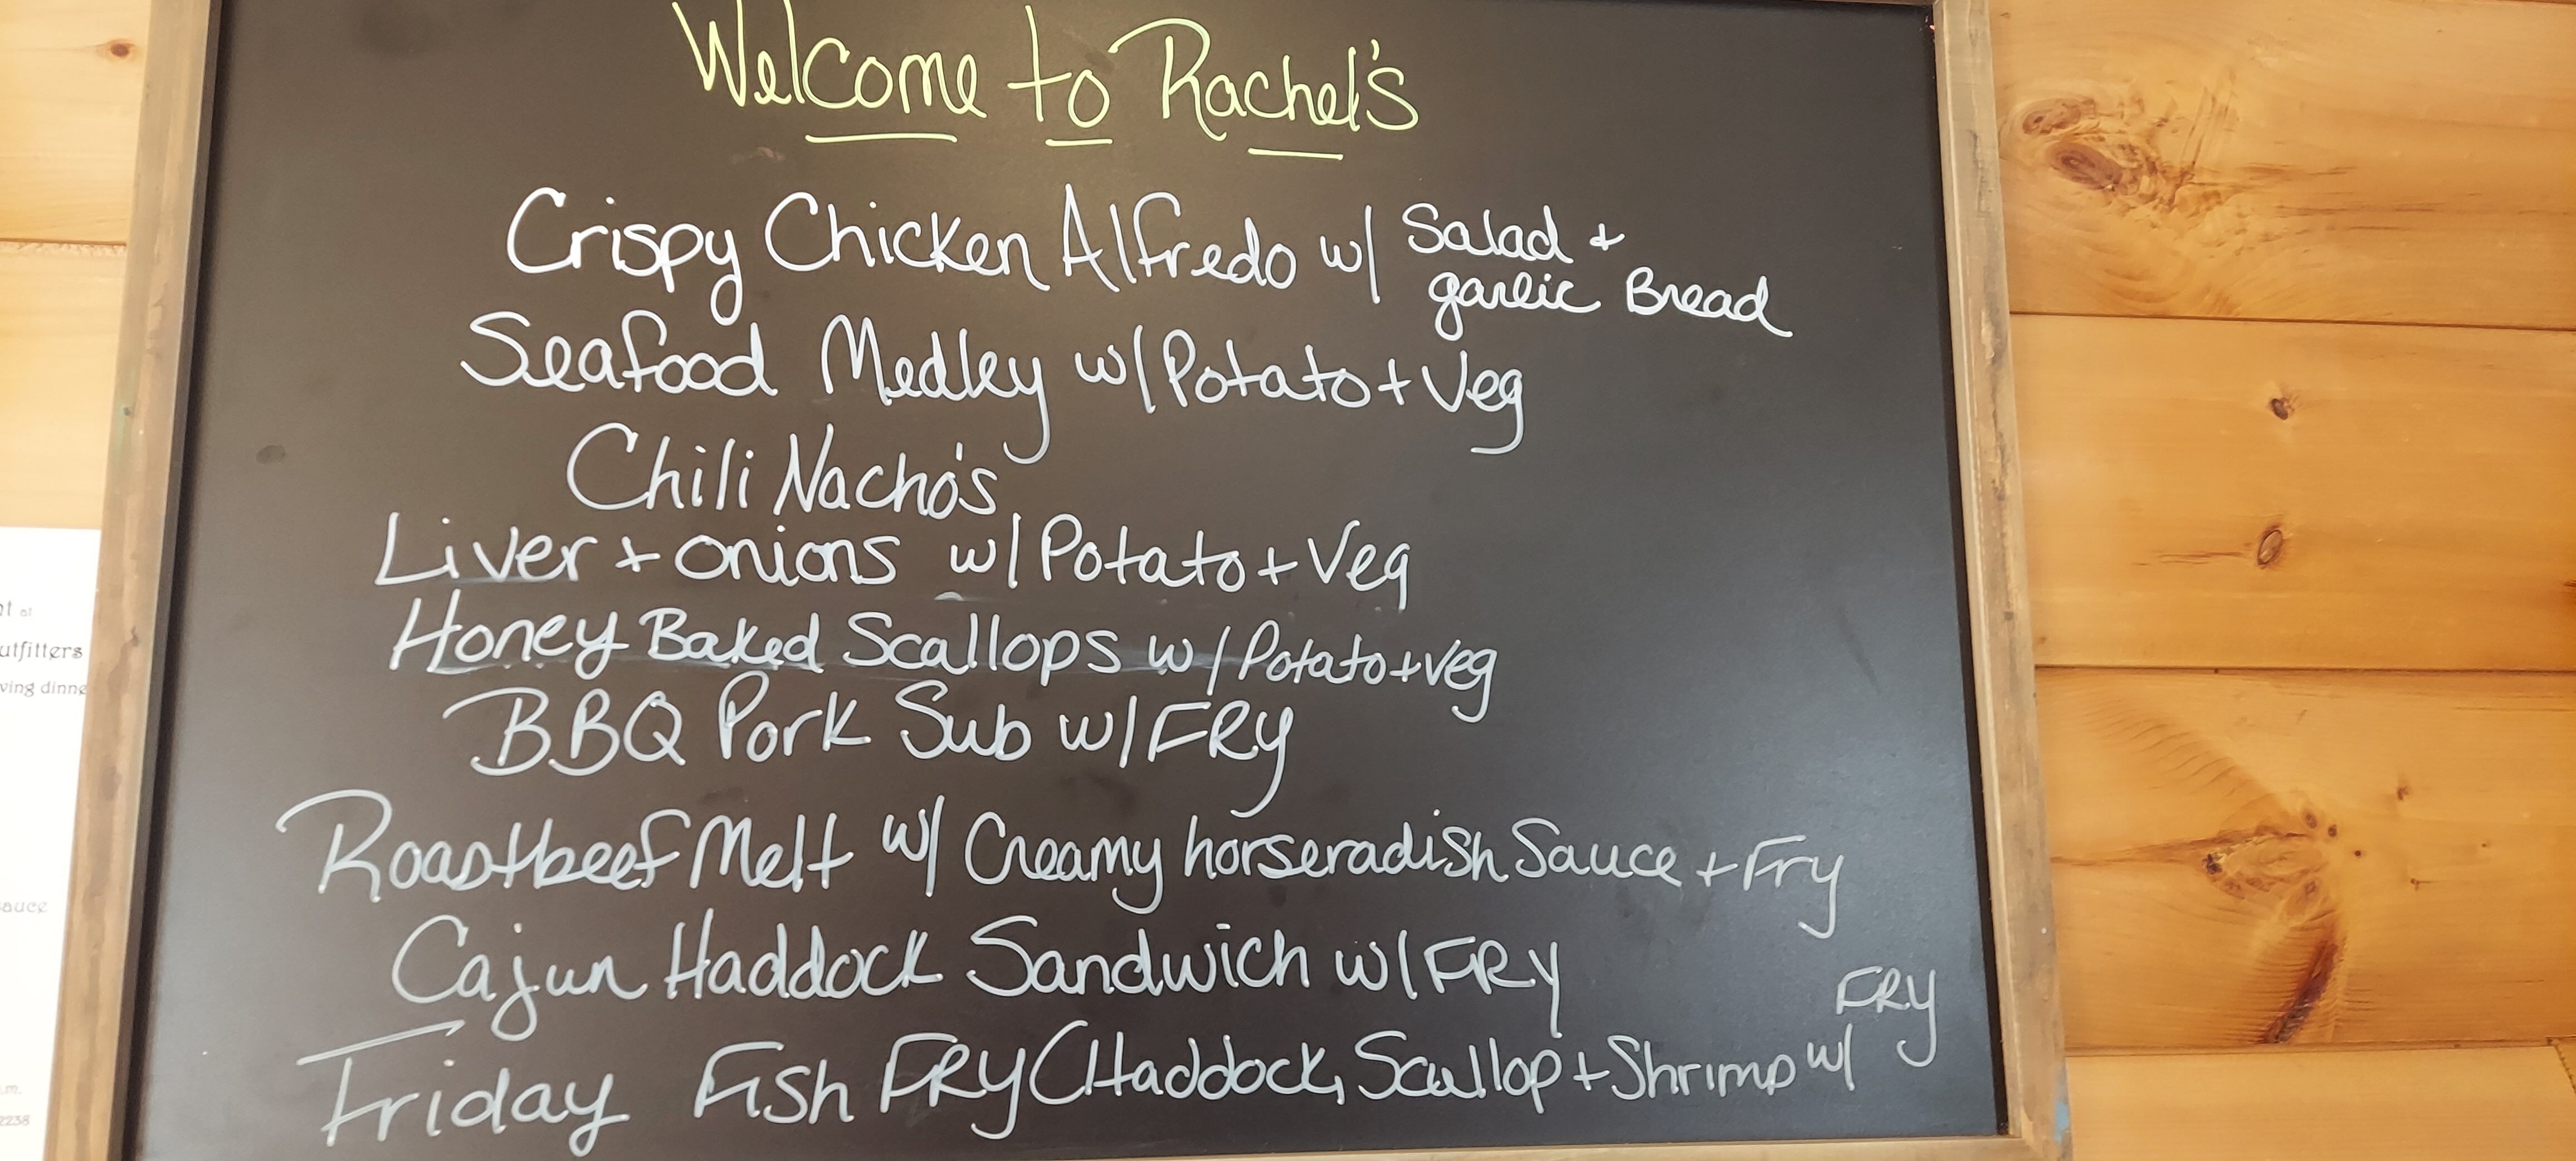 Welcome to Rachel's
Crispy Chicken Alfredo w/ Salad +
garlic Bread
Seafood Medley w/ Potato + Veg
Chili Nacho's
Liver + onions w/ Potato + Veg
Honey Baked Scallops w/ Potato + veg
BBQ Pork Sub w/ FRY
Roastbeef Melt w/ Creamy horseradish Sauce + Fry
Cajun Haddock Sandwich w/ FRY
Friday Fish FRY (Haddock, Scallop + Shrimp w/ FRY
at
utfitters
ving dinne
sauce
.m.
2238